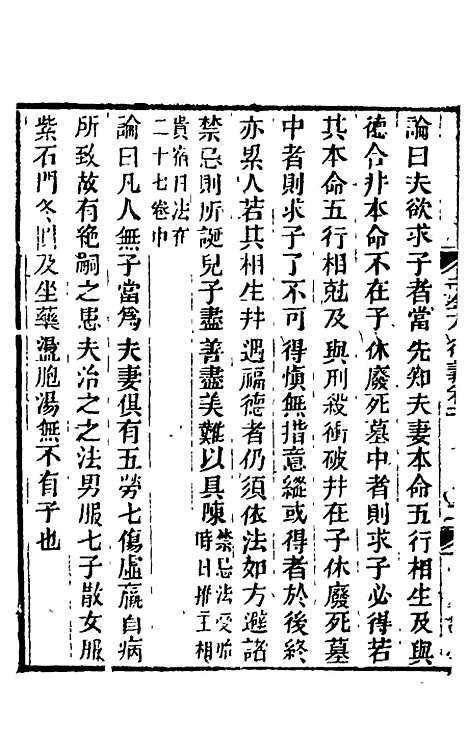 論曰夫欲求子者當先知夫妻本命五行相生及與
德合非本命不在子休廢死墓中者則求子必得若
其本命五行相尅及與刑殺衝破并在子休廢死墓
中者則求子了不可得愼無措意縱或得者於後終
亦累人若其相生并遇福德者仍須依法如方避諸
禁忌則所誕兒子盡善盡美難以具陳禁忌法受胎
時日推王相
貴宿日法在
二十七卷中
論曰凡人無子當爲夫妻俱有五勞七傷虛羸百病
所致故有絶嗣之患夫治之之法男服七子散女服
紫石門冬圓及坐藥盪胞湯無不有子也